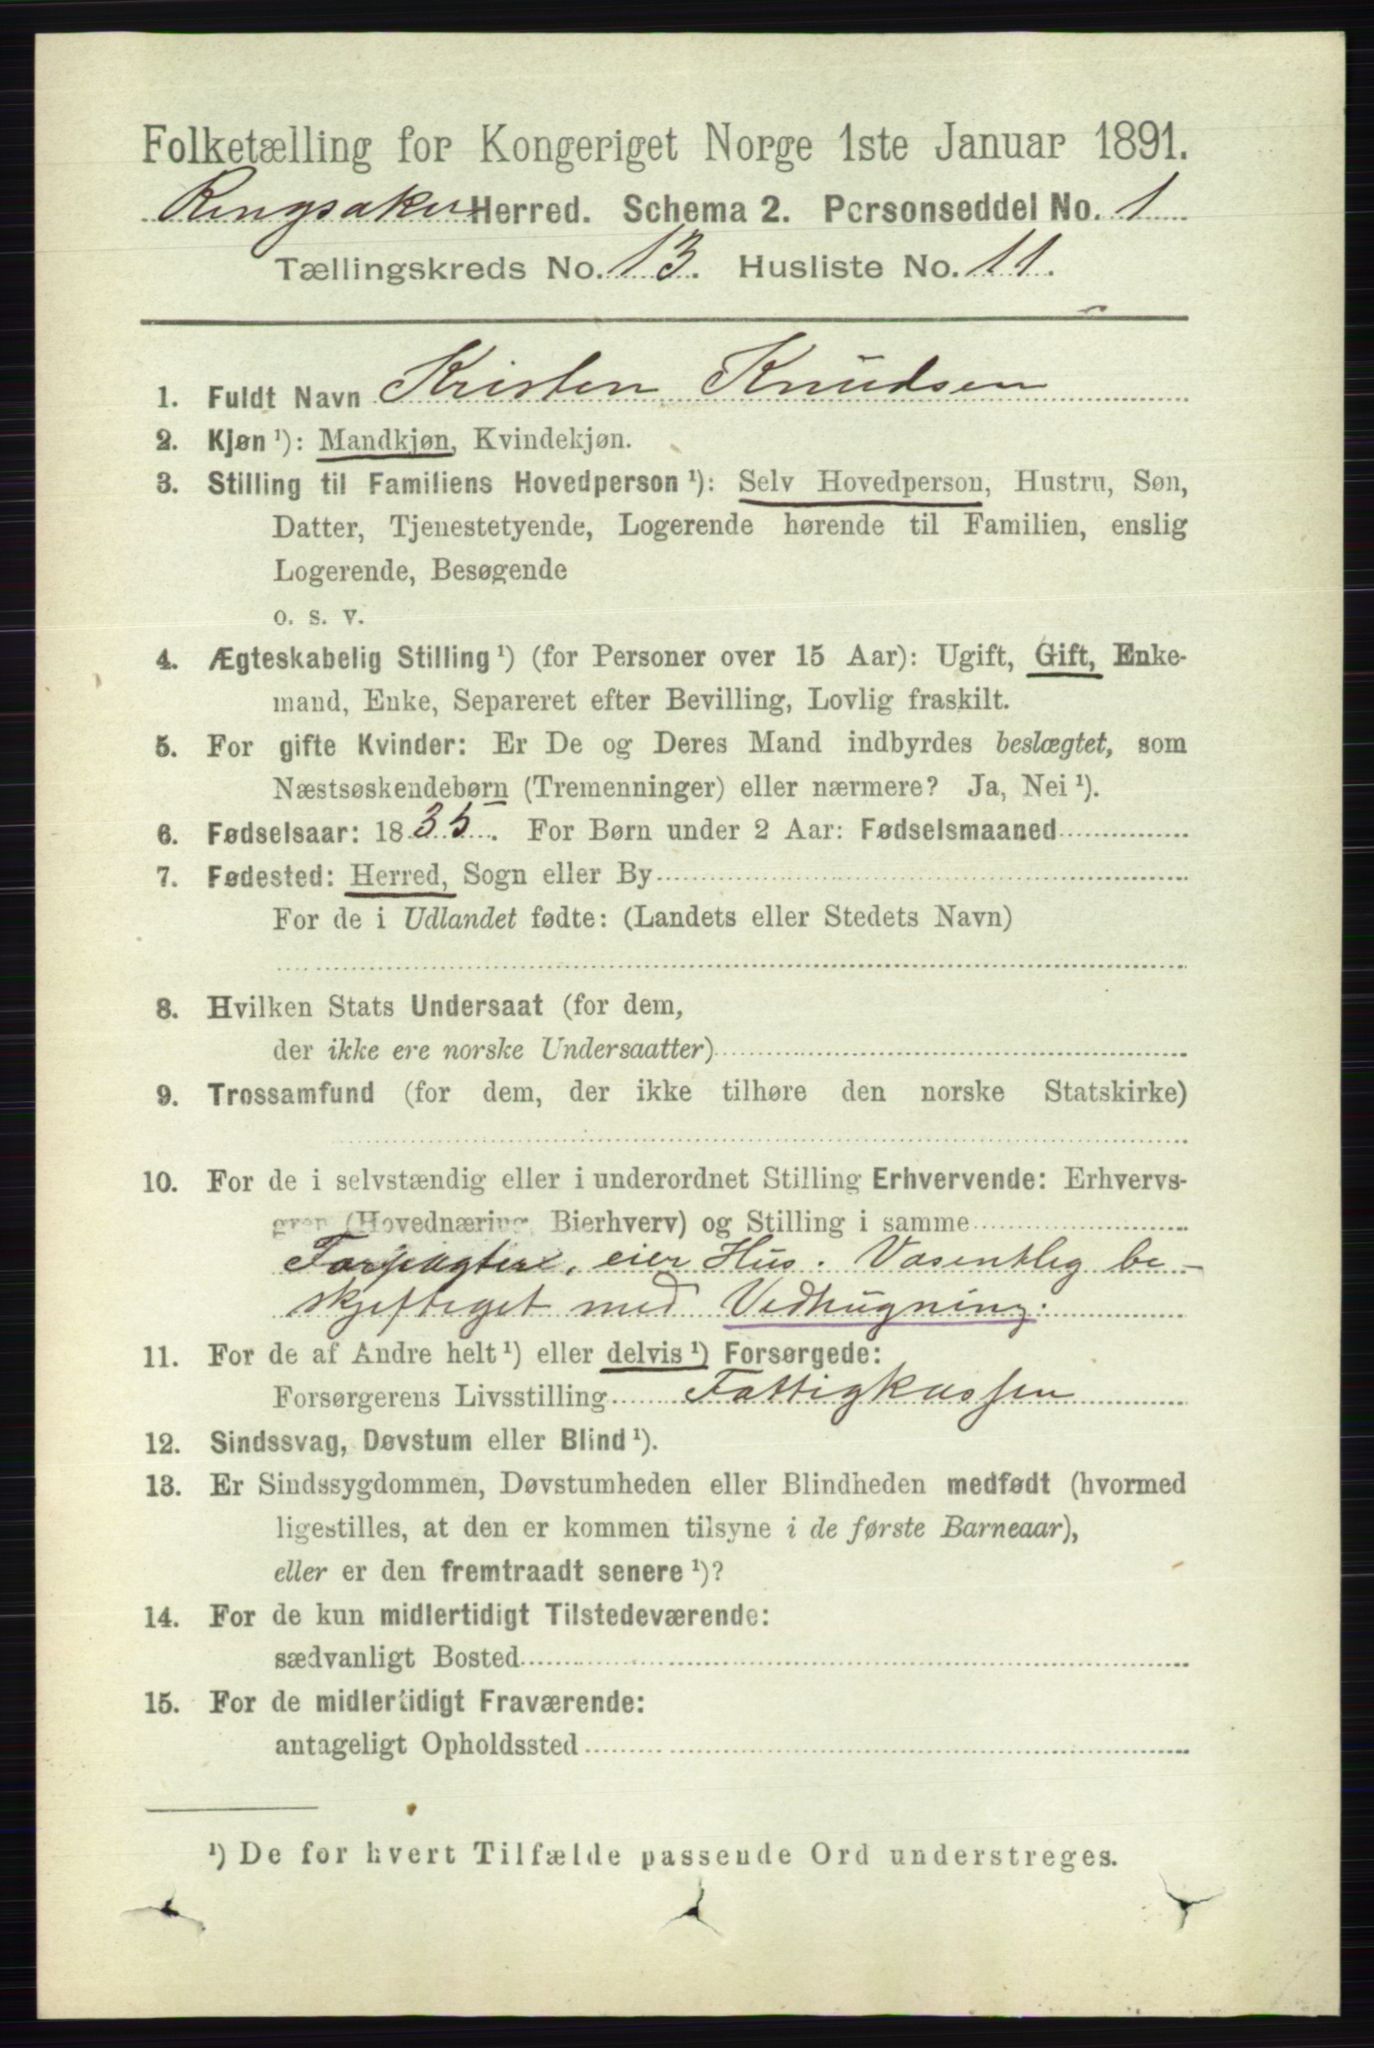 Folketælling for Kongeriget Norge 1ste Januar 1891.
Ringsaker Herred. Schema 2. Personseddel No. 1
Tællingskreds No. 13. Husliste No. 11.
1. Fuldt Navn Kristen Knudsen
2. Kjøn ¹): Mandkjøn, Kvindekjøn.
3. Stilling til Familiens Hovedperson ¹): Selv Hovedperson, Hustru, Søn,
Datter, Tjenestetyende, Logerende hørende til Familien, enslig
Logerende, Besøgende
o. s. v.
4. Ægteskabelig Stilling ¹) (for Personer over 15 Aar): Ugift, Gift, Enke-
mand, Enke, Separeret efter Bevilling, Lovlig fraskilt.
5. For gifte Kvinder: Er De og Deres Mand indbyrdes beslægtet, som
Næstsøskendebørn (Tremenninger) eller nærmere? Ja, Nei ¹).
6. Fødselsaar: 1835. For Børn under 2 Aar: Fødselsmaaned
7. Fødested: Herred, Sogn eller By
For de i Udlandet fødte: (Landets eller Stedets Navn)
8. Hvilken Stats Undersaat (for dem,
der ikke ere norske Undersaatter)
9. Trossamfund (for dem, der ikke tilhøre den norske Statskirke)
10. For de i selvstændig eller i underordnet Stilling Erhvervende: Erhvervs-
gren (Hovednæring, Bierhverv) og Stilling i samme
Forpagter, eier Hus. Væsentlig be-
skjeftiget med Vedhugning.
11. For de af Andre helt ¹) eller delvis ¹) Forsørgede:
Forsørgerens Livsstilling Fattigkassen
12. Sindssvag, Døvstum eller Blind ¹).
13. Er Sindssygdommen, Døvstumheden eller Blindheden medfødt (hvormed
ligestilles, at den er kommen tilsyne i de første Barneaar),
eller er den fremtraadt senere ¹)?
14. For de kun midlertidigt Tilstedeværende:
sædvanligt Bosted
15. For de midlertidigt Fraværende:
antageligt Opholdssted
¹) De for hvert Tilfælde passende Ord understreges.